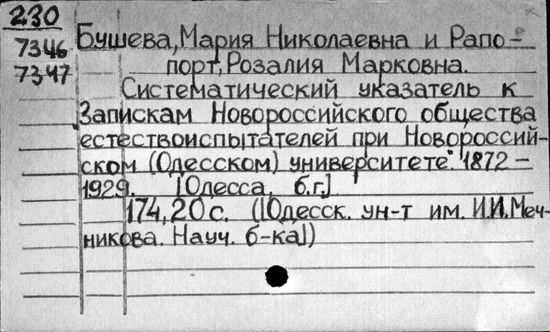 230
7346 Бушева, Мария Николаевна и Рапо-
7347 порт, Розалия Марковна.
Систематический указатель к
"Запискам Новороссийского общества
естествоиспытателей при Новороссий-
ском (Одесском) университете". 1872-
1929. [Одесса, б.г.]
174,20 с. ([Одесск. ун-т им. И.И. Меч-
никова. Науч. б-ка])